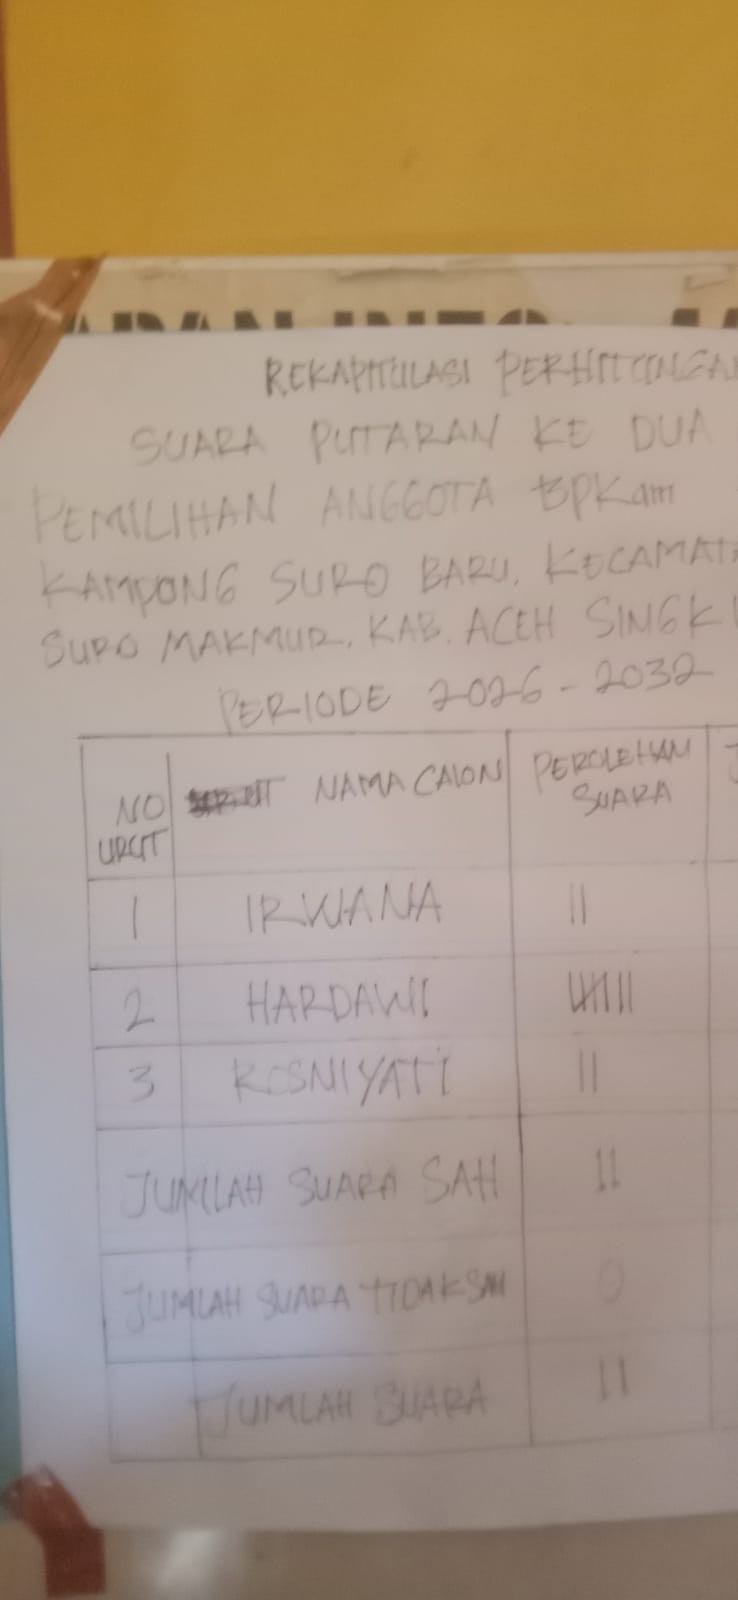 REKAPITULASI PERHITUNGAN
SUARA PUTARAN KE DUA
PEMILIHAN ANGGOTA BPKam
KAMPONG SURO BARU, KECAMATA
SURO MAKMUR, KAB. ACEH SINGKI
PERIODE 2026-2032
NO URUT NAMA CALON PEROLEHAN SUARA
1 IRWANA II
2 HARDAWI IIIIIII
3 ROSNIYATI II
JUMLAH SUARA SAH 11
JUMLAH SUARA TIDAK SAH 0
JUMLAH SUARA 11